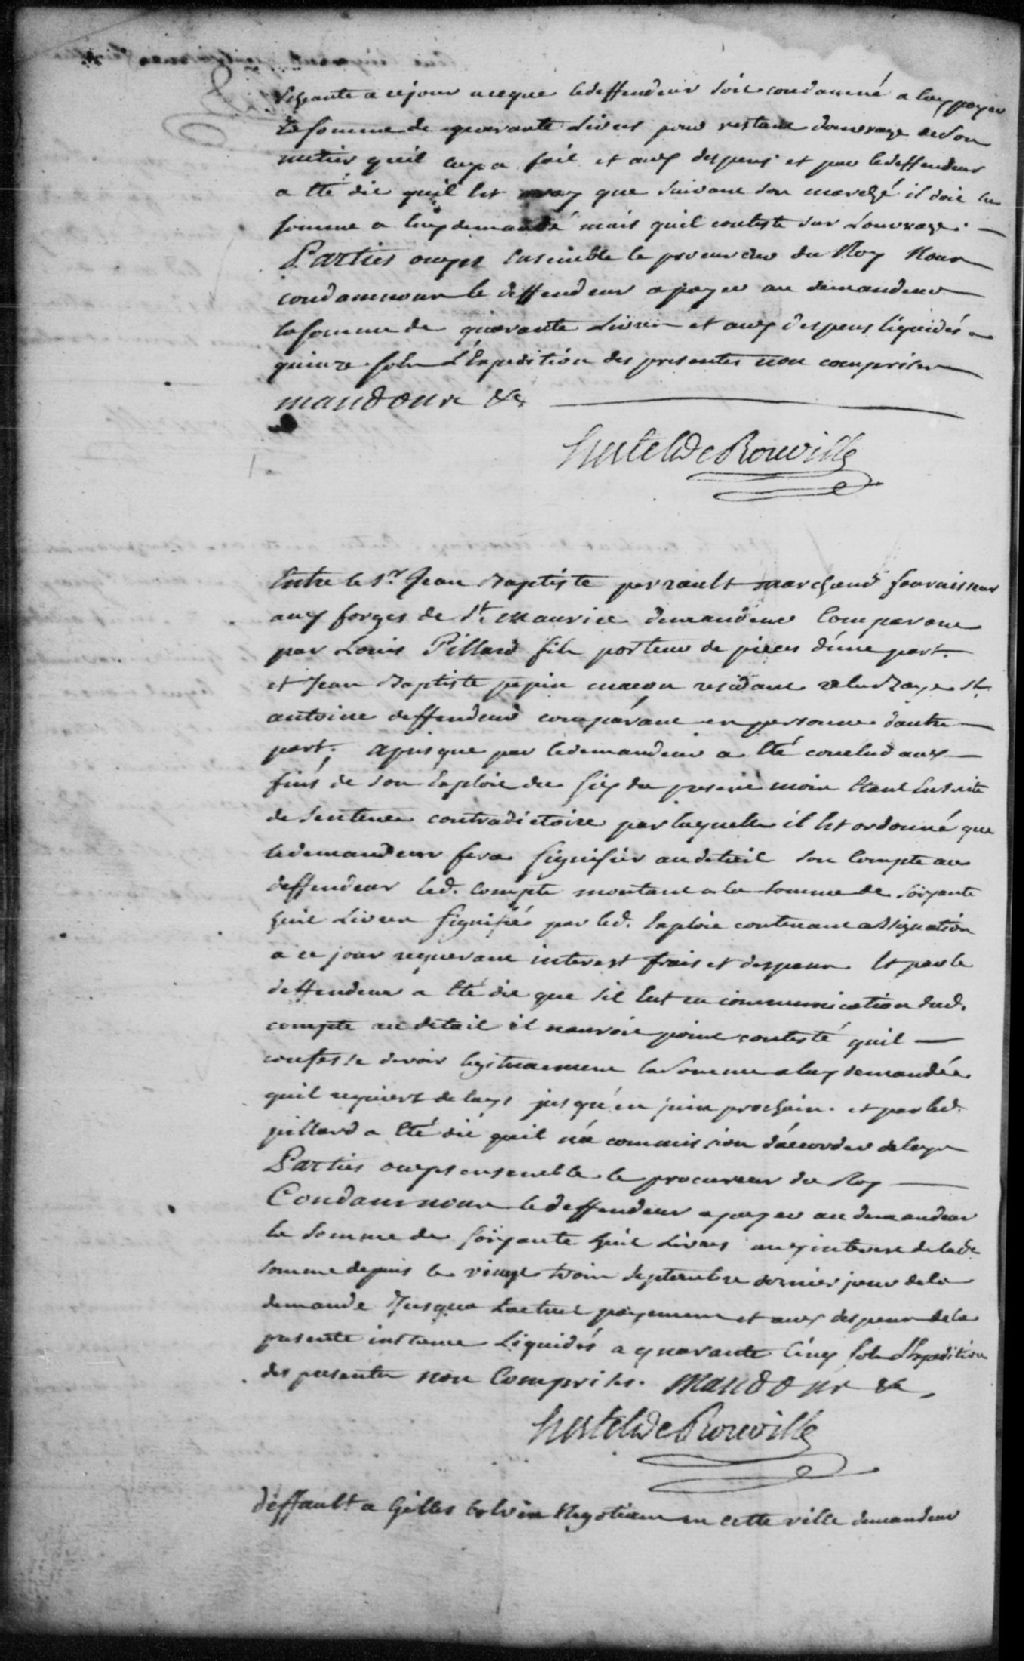 Echeante a ce jour a ce que le deffendeur soit condamné a luy payer
la somme de quarante Livres pour restant d'ouvrage de son
metier quil luy a fait et aux despens et par le deffendeur
a eté dit quil est vray que suivant son marché il doit la
somme a luy demandé mais quil conteste sur L'ouvrage.
Parties ouyes Ensemble le procureur du Roy Nous
condamnons le deffendeur a payer au demandeur
la somme de quarante Livres et aux despens liquidés a
quinze sols L'Expedition des presentes non comprises
mandons &c
Hertel De Rouville
Entre le Sr Jean Baptiste perrault marchand fournisseur
aux forges de St maurice demandeur Comparant
par Louis Pillard fils porteur de pieces d'une part.
et Jean Baptiste pepin macon residant a la Baye St
antoine deffendeur comparant en personne dautre
part. apres que par le demandeur a eté conclud aux
fins de son Exploit du six du present mois Etant Ensuite
de Sentence contradictoire par laquelle il Est ordonné que
le demandeur fera signifier au detail son Compte au
deffendeur led. compte montant a la somme de soixante
huit Livres signifié par led. Exploit contenant assignation
a ce jour requerant interest frais et despens. Et par le
deffendeur a eté dit que sil Eut eu communication dud.
compte au detail il nauroit point contesté quil
confesse devoir legitimement la somme a luy demandée
quil requiert delays jusqu'en juin prochain. et par led.
pillard a eté dit quil n'a commission d'accorder delays
Parties ouyes ensemble le procureur du Roy
Condamnons le deffendeur a payer au demandeur
la somme de soixante huit Livres aux interest de lade
somme depuis le vingt trois Septembre dernier jour de la
demande Jusqua Lactuel payement et aux despens de la
presente instance Liquidés a quarante Cinq sols L'Expedition
des presentes non Comprises. Mandons &c.
Hertel De Rouville
deffault a Gilles Negotiant en cette ville demandeur